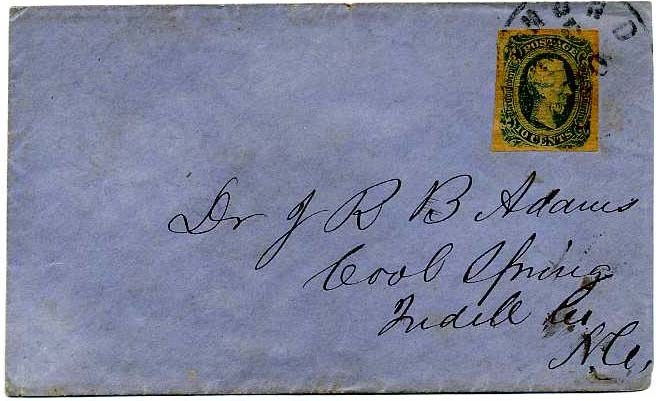 MOND
POSTAGE
10 CENTS
Dr J R B Adams
Cool Spring
Iredell Co
N.C.